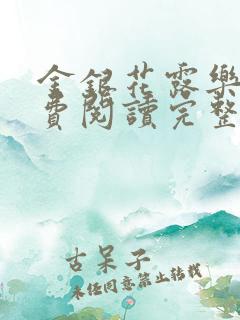 金銀花露樂
費閱讀完整
古呆子
未經同意禁止转载